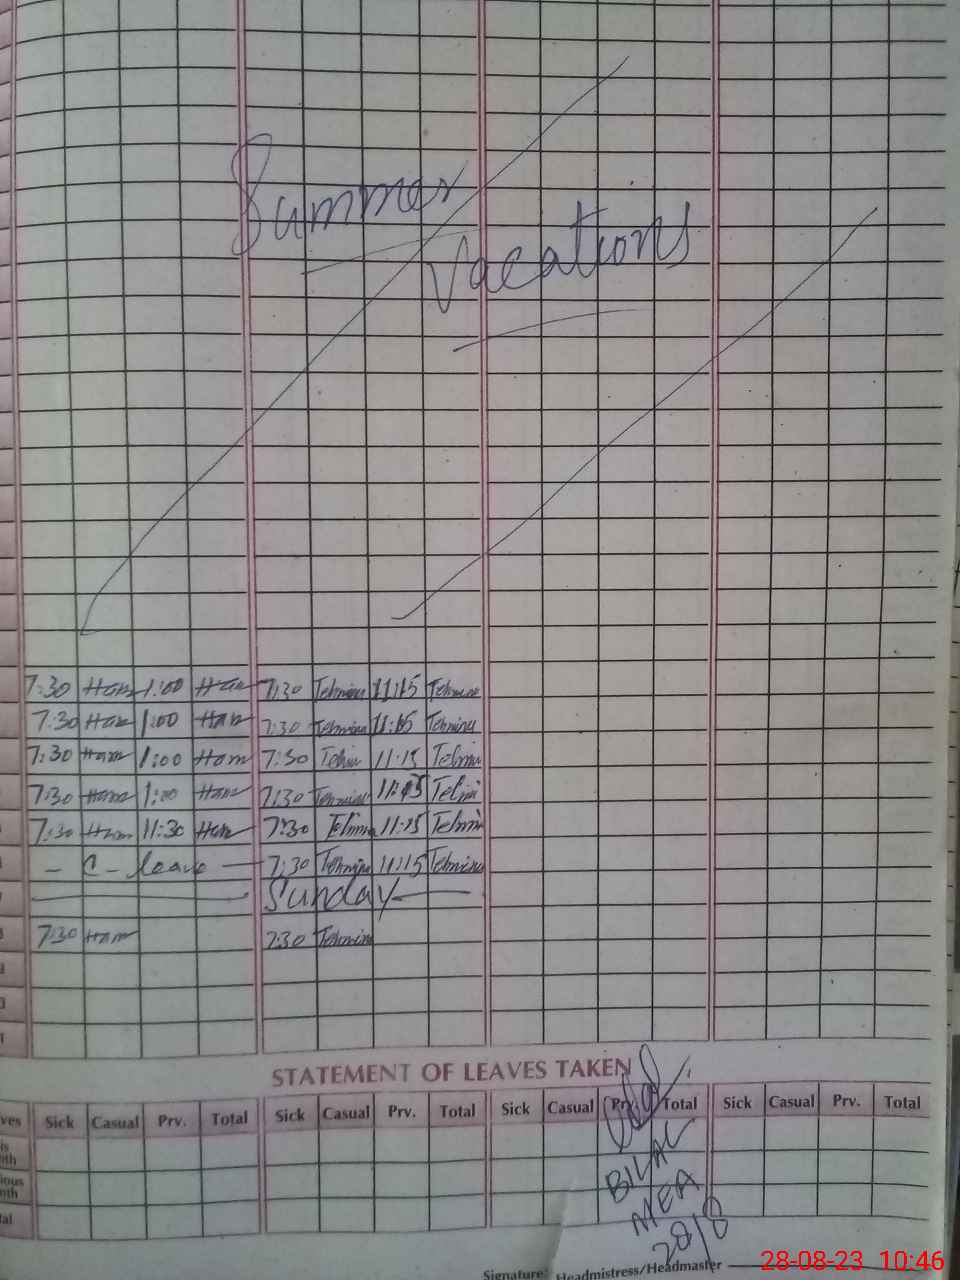 Summer
Vacations
7:30 Ham 1:00 Ham 7:30 Tehmina 11:15 Tehmina
7:30 Ham 1:00 Ham 7:30 Tehmina 11:15 Tehmina
7:30 Ham 1:00 Ham 7:30 11:15
7:30 Ham 1:00 Ham 7:30 Tehmina 11:15
7:30 Ham 11:30 Ham 7:30 11:15
- C - leave - 7:30 Tehmina 11:15 Tehmina
Sunday
7:30 Ham 7:30 Tehmina
STATEMENT OF LEAVES TAKEN
Sick Casual Prv. Total Sick Casual Prv. Total Sick Casual Total Sick Casual Prv. Total
BILAL
MEA
28/8
Signature: Headmistress/Headmaster
28-08-23 10:46